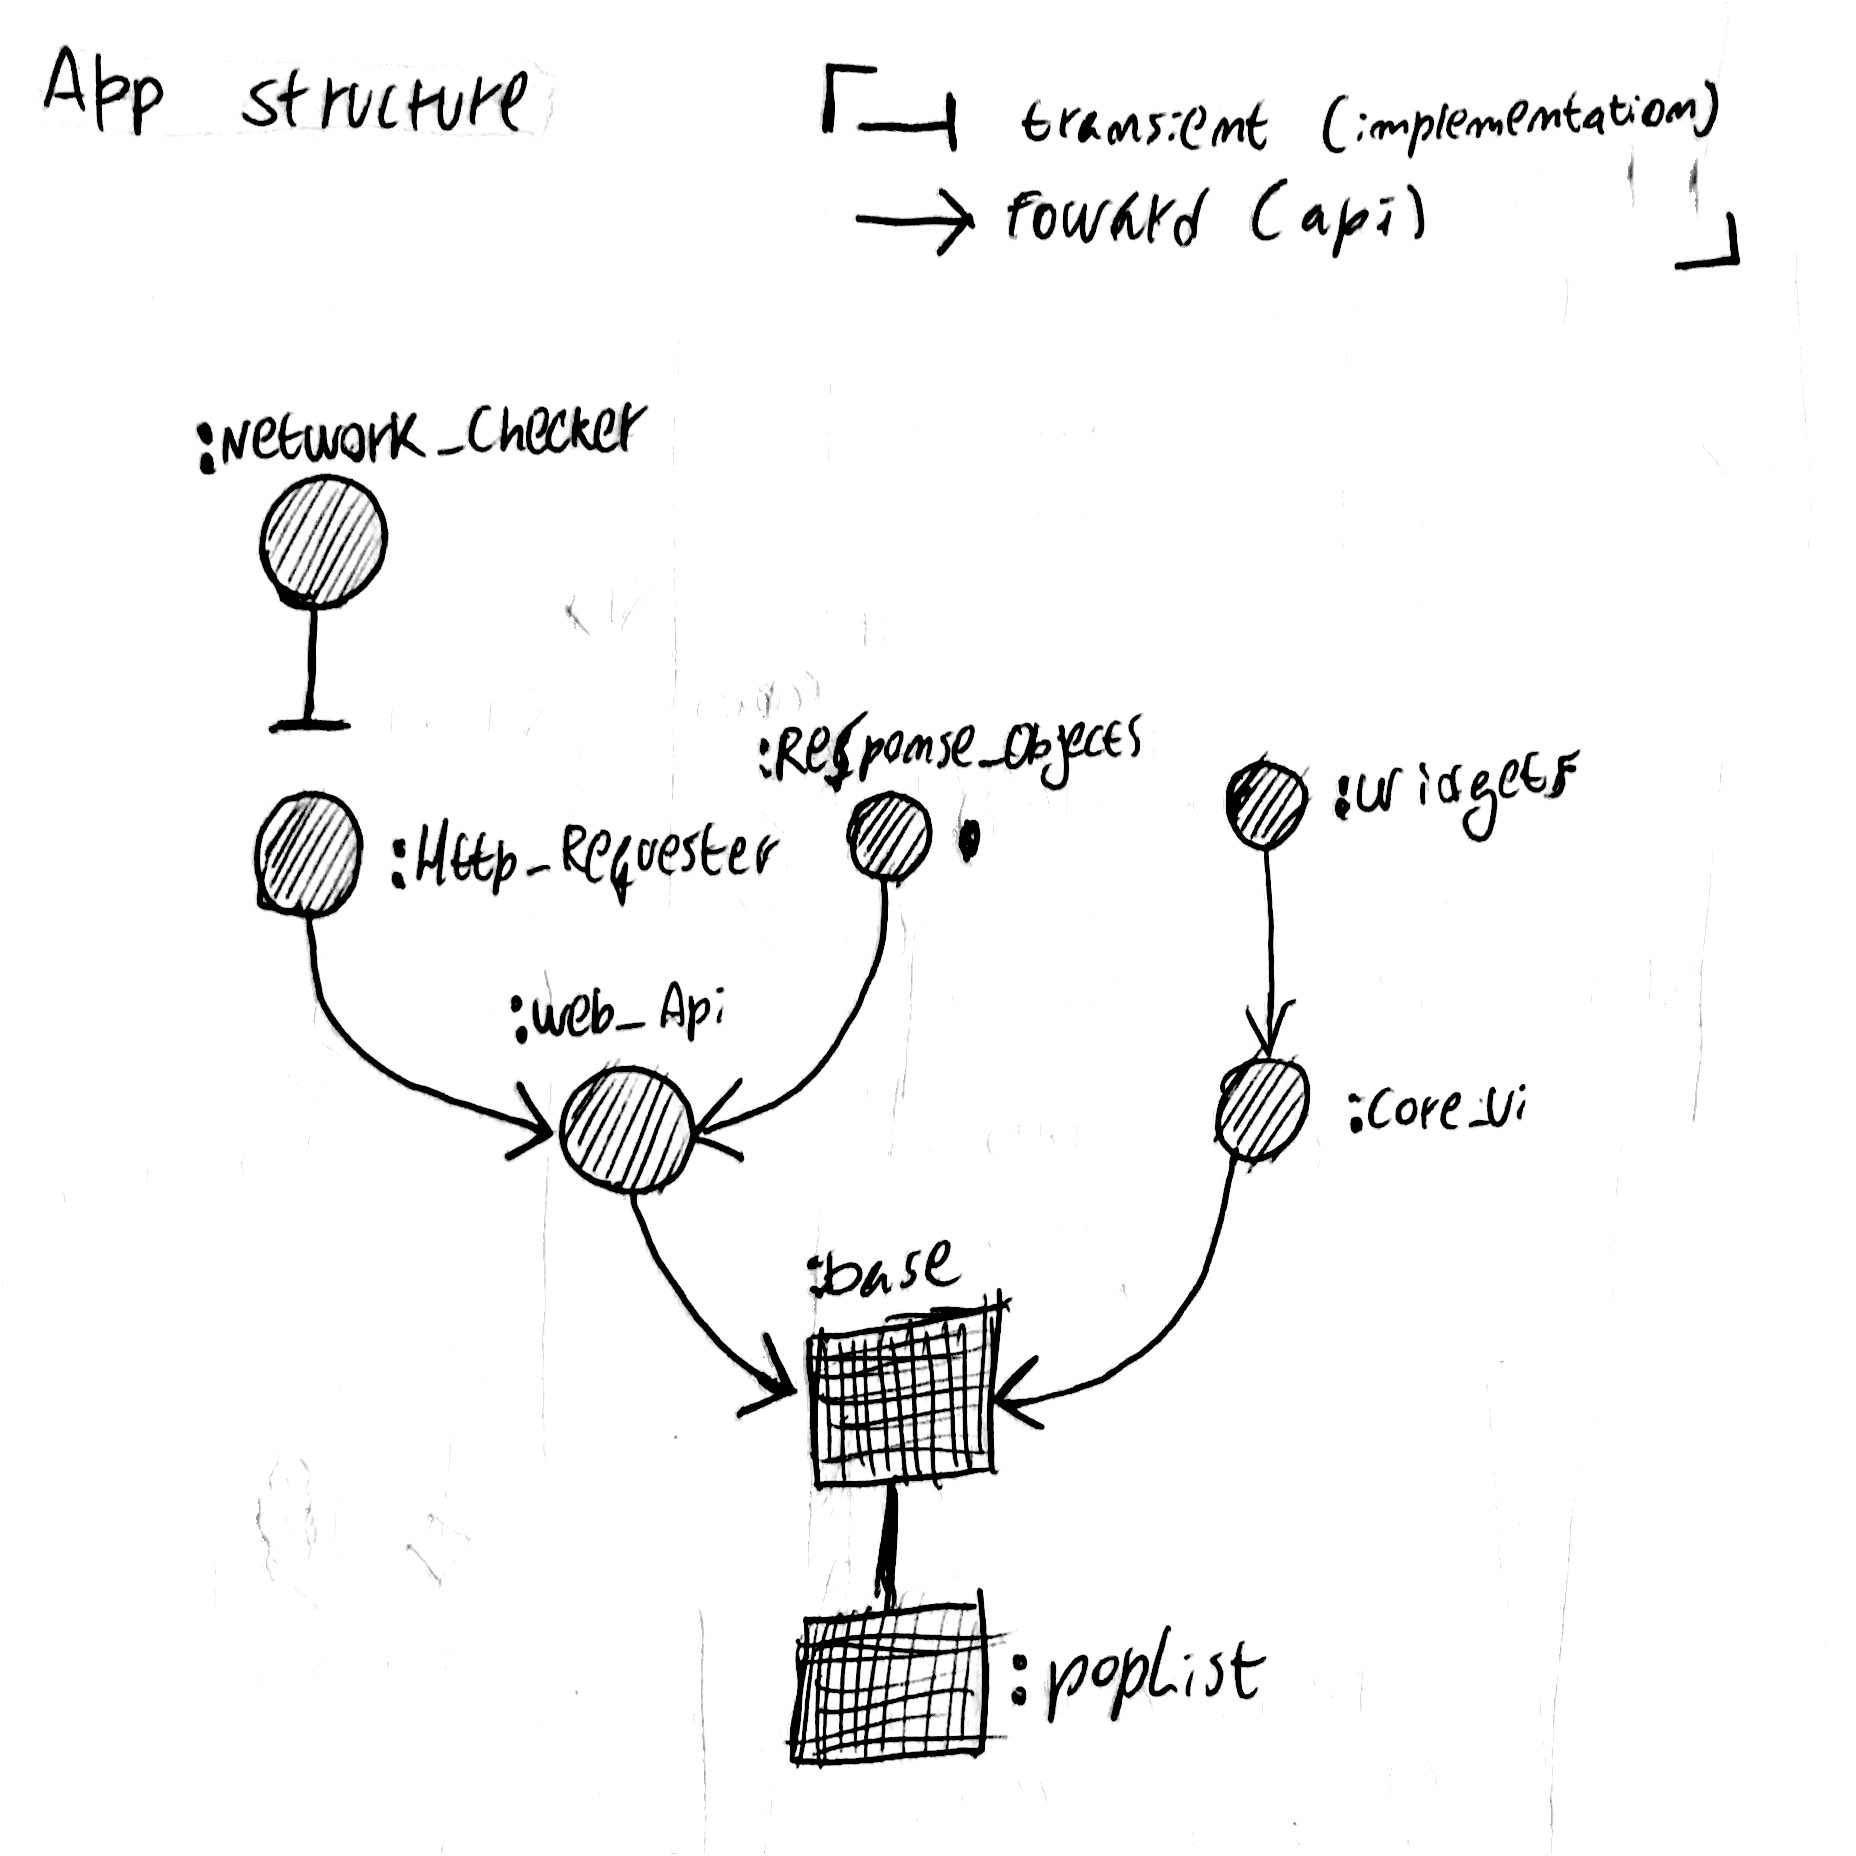 App structure
transient (implementation)
foward (api)
:Network_Checker
:Response_Objects
:Widgets
:Http_Requester
:web_Api
:Core_Ui
:base
:popList